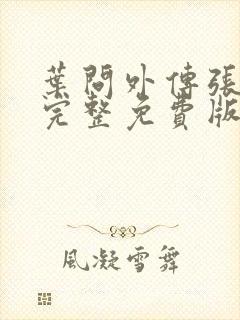 葉問外傳張
完整免費版
風凝雪舞